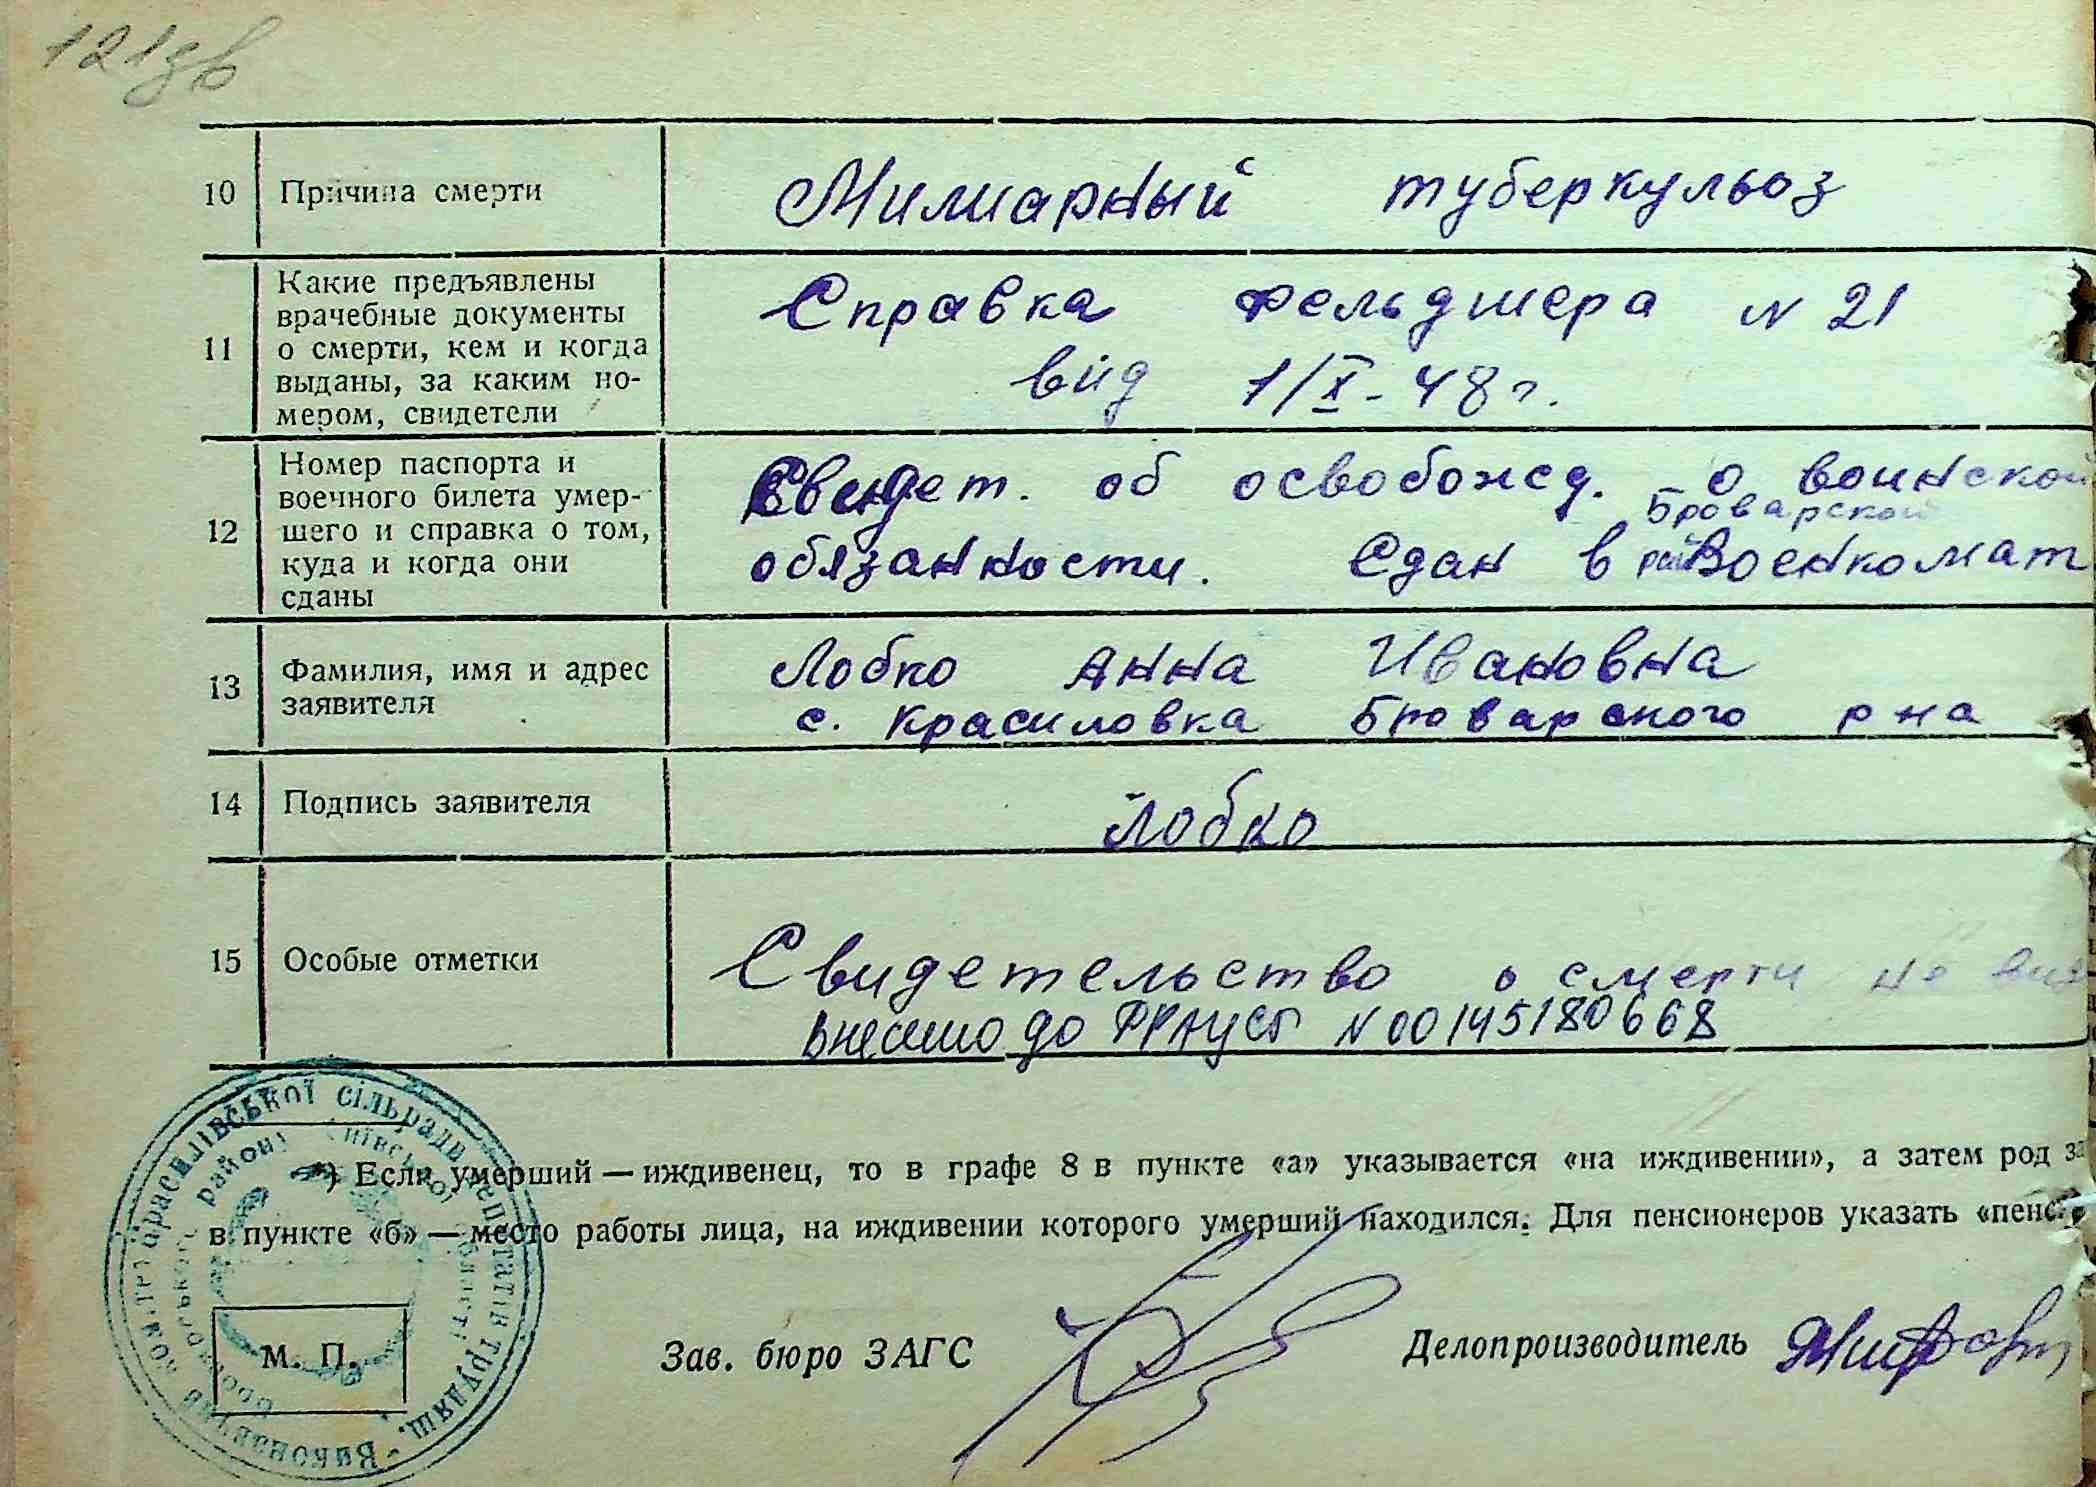 121зв
10 Причина смерти Милиарный туберкульоз
11 Какие предъявлены врачебные документы о смерти, кем и когда выданы, за каким но-мером, свидетели
Справка фельдшера N 21
від 1/X-48 г.
12 Номер паспорта и военного билета умер-шего и справка о том, куда и когда они сданы
Свидет. об освобожд. о воинской
Броварской
обязанности. Сдан в рай Военкомат
13 Фамилия, имя и адрес заявителя
Лобко Анна Ивановна
с. Красиловка Броварского р на
14 Подпись заявителя Лобко
15 Особые отметки
Свидетельство о смерти не
внесено до N 00145180668
*) Если умерший — иждивенец, то в графе 8 в пункте «а» указывается «на иждивении», а затем род
в пункте «б» — место работы лица, на иждивении которого умерший находился. Для пенсионеров указать «пенс
М. П.
Зав. бюро ЗАГС
Делопроизводитель
Виконавчий комітет Красилівської сільради депутатів трудящ.
району Київської області